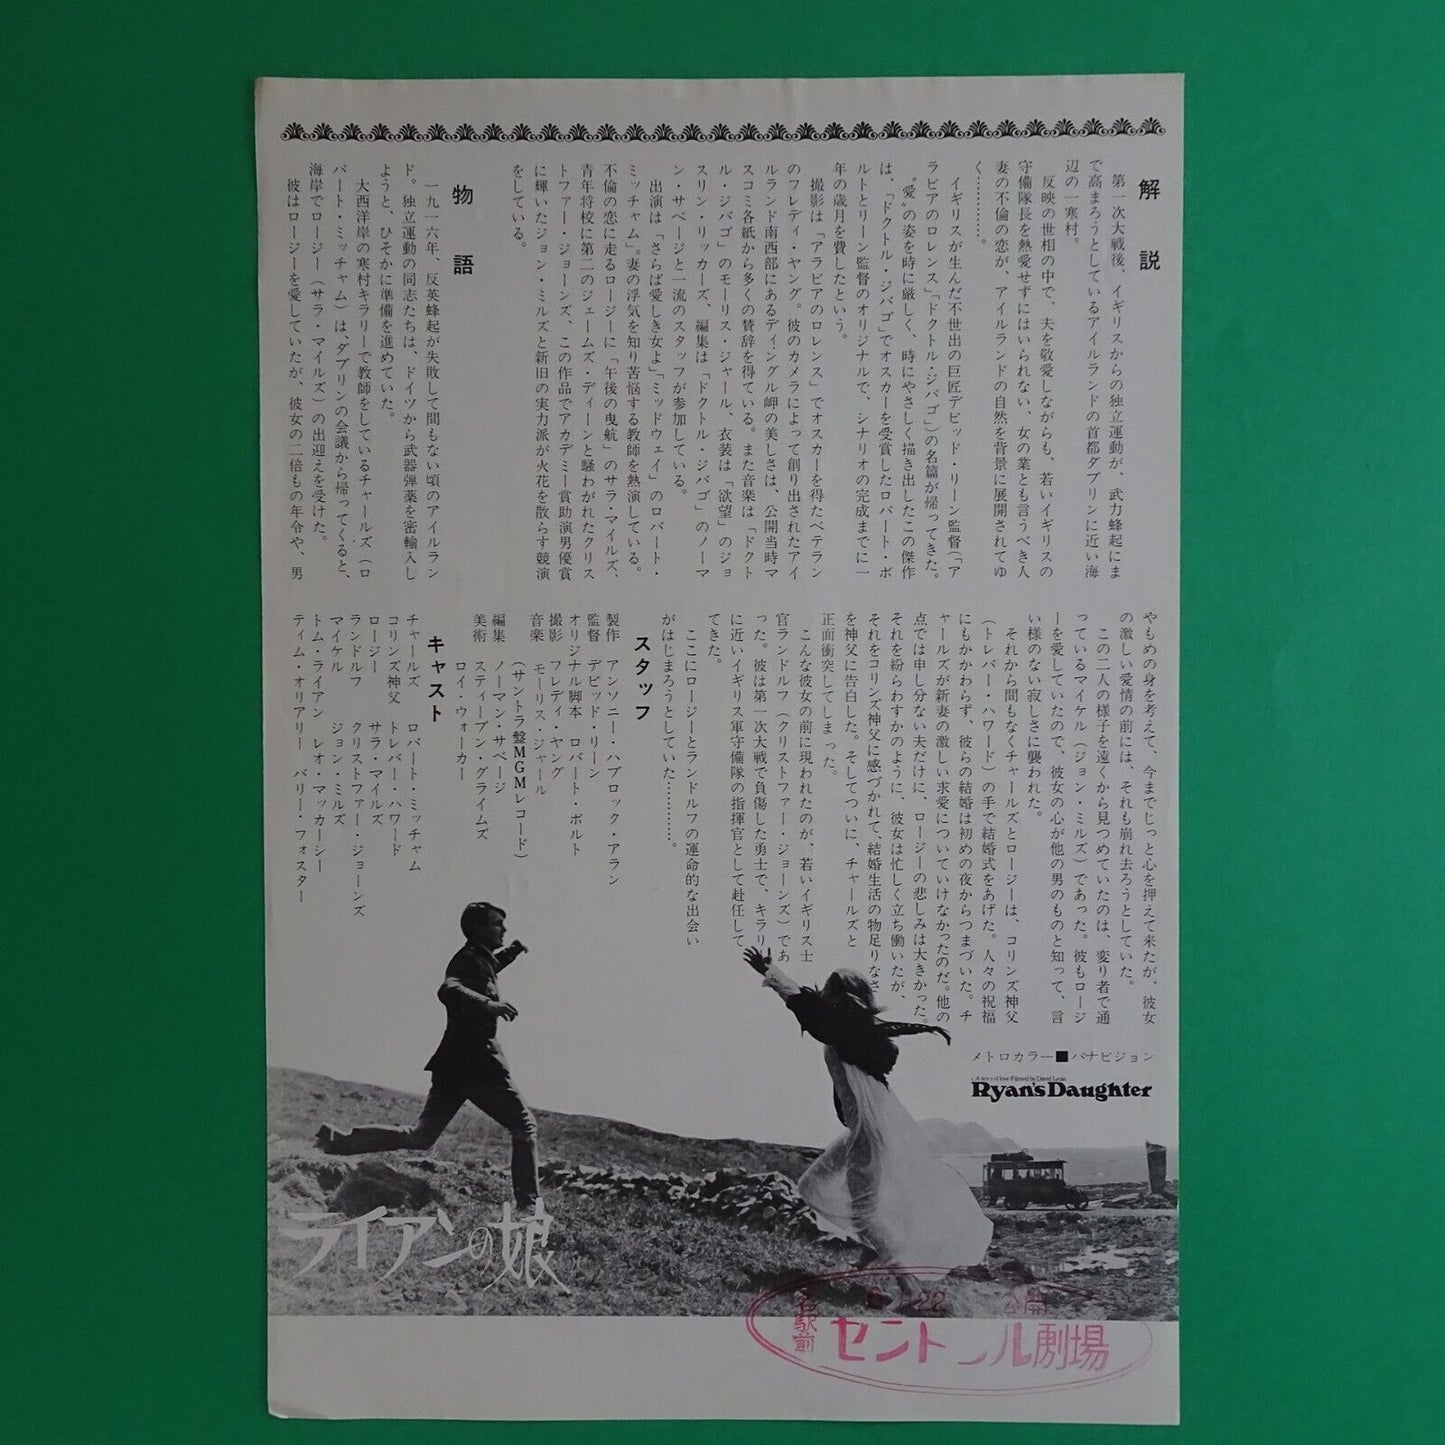 解説
第一次大戦後、イギリスからの独立運動が、武力蜂起にま
で高まろうとしているアイルランドの首都ダブリンに近い海
辺の一寒村。
反映の世相の中で、夫を敬愛しながらも、若いイギリスの
守備隊長を熱愛せずにはいられない、女の業とも言うべき人
妻の不倫の恋が、アイルランドの自然を背景に展開されてゆ
く…………。
イギリスが生んだ不世出の巨匠デビッド・リーン監督(「ア
ラビアのロレンス」「ドクトル・ジバゴ」)の名篇が帰ってきた。
〝愛〟の姿を時に厳しく、時にやさしく描き出したこの傑作
は、「ドクトル・ジバゴ」でオスカーを受賞したロバート・ボ
ルトとリーン監督のオリジナルで、シナリオの完成までに一
年の歳月を費したという。
撮影は「アラビアのロレンス」でオスカーを得たベテラン
のフレディ・ヤング。彼のカメラによって創り出されたアイ
ルランド南西部にあるディングル岬の美しさは、公開当時マ
スコミ各紙から多くの賛辞を得ている。また音楽は「ドクト
ル・ジバゴ」のモーリス・ジャール、衣装は「欲望」のジョ
スリン・リッカーズ、編集は「ドクトル・ジバゴ」のノーマ
ン・サベージと一流のスタッフが参加している。
出演は「さらば愛しき女よ」「ミッドウェイ」のロバート・
ミッチャム」。妻の浮気を知り苦悩する教師を熱演している。
不倫の恋に走るロージーに「午後の曳航」のサラ・マイルズ、
青年将校に第二のジェームズ・ディーンと騒わがれたクリス
トファー・ジョーンズ、この作品でアカデミー賞助演男優賞
に輝いたジョン・ミルズと新旧の実力派が火花を散らす競演
をしている。
物語
一九一六年、反英蜂起が失敗して間もない頃のアイルラン
ド。独立運動の同志たちは、ドイツから武器弾薬を密輸入し
ようと、ひそかに準備を進めていた。
大西洋岸の寒村キラリーで教師をしているチャールズ(ロ
バート・ミッチャム)は、ダブリンの会議から帰ってくると、
海岸でロージー(サラ・マイルズ)の出迎えを受けた。
彼はロージーを愛していたが、彼女の二倍もの年令や、男
やもめの身を考えて、今までじっと心を押えて来たが、彼女
の激しい愛情の前には、それも崩れ去ろうとしていた。
この二人の様子を遠くから見つめていたのは、変り者で通
っているマイケル(ジョン・ミルズ)であった。彼もロージ
ーを愛していたので、彼女の心が他の男のものと知って、言
い様のない寂しさに襲われた。
それから間もなくチャールズとロージーは、コリンズ神父
(トレバー・ハワード)の手で結婚式をあげた。人々の祝福
にもかかわらず、彼らの結婚は初めの夜からつまづいた。チ
ャールズが新妻の激しい求愛についていけなかったのだ。他の
点では申し分ない夫だけに、ロージーの悲しみは大きかった。
それを紛らわすかのように、彼女は忙しく立ち働いたが、
それをコリンズ神父に感づかれて、結婚生活の物足りなさ
を神父に告白した。そしてついに、チャールズと
正面衝突してしまった。
こんな彼女の前に現われたのが、若いイギリス士
官ランドルフ(クリストファー・ジョーンズ)であ
った。彼は第一次大戦で負傷した勇士で、キラリー
に近いイギリス軍守備隊の指揮官として赴任して
てきた。
ここにロージーとランドルフの運命的な出会い
がはじまろうとしていた…………。
スタッフ
製作 アンソニー・ハブロック・アラン
監督 デビッド・リーン
オリジナル脚本 ロバート・ボルト
撮影 フレディ・ヤング
音楽 モーリス・ジャール
(サントラ盤MGMレコード)
編集 ノーマン・サベージ
美術 スティーブン・グライムズ
ロイ・ウォーカー
キャスト
チャールズ ロバート・ミッチャム
コリンズ神父 トレバー・ハワード
ロージー サラ・マイルズ
ランドルフ クリストファー・ジョーンズ
マイケル ジョン・ミルズ
トム・ライアン レオ・マッカーシー
ティム・オリアリー バリー・フォスター
メトロカラー■パナビジョン
A story of love Filmed by David Lean
Ryan's Daughter
ライアンの娘
名駅前
22 公開
セントラル劇場